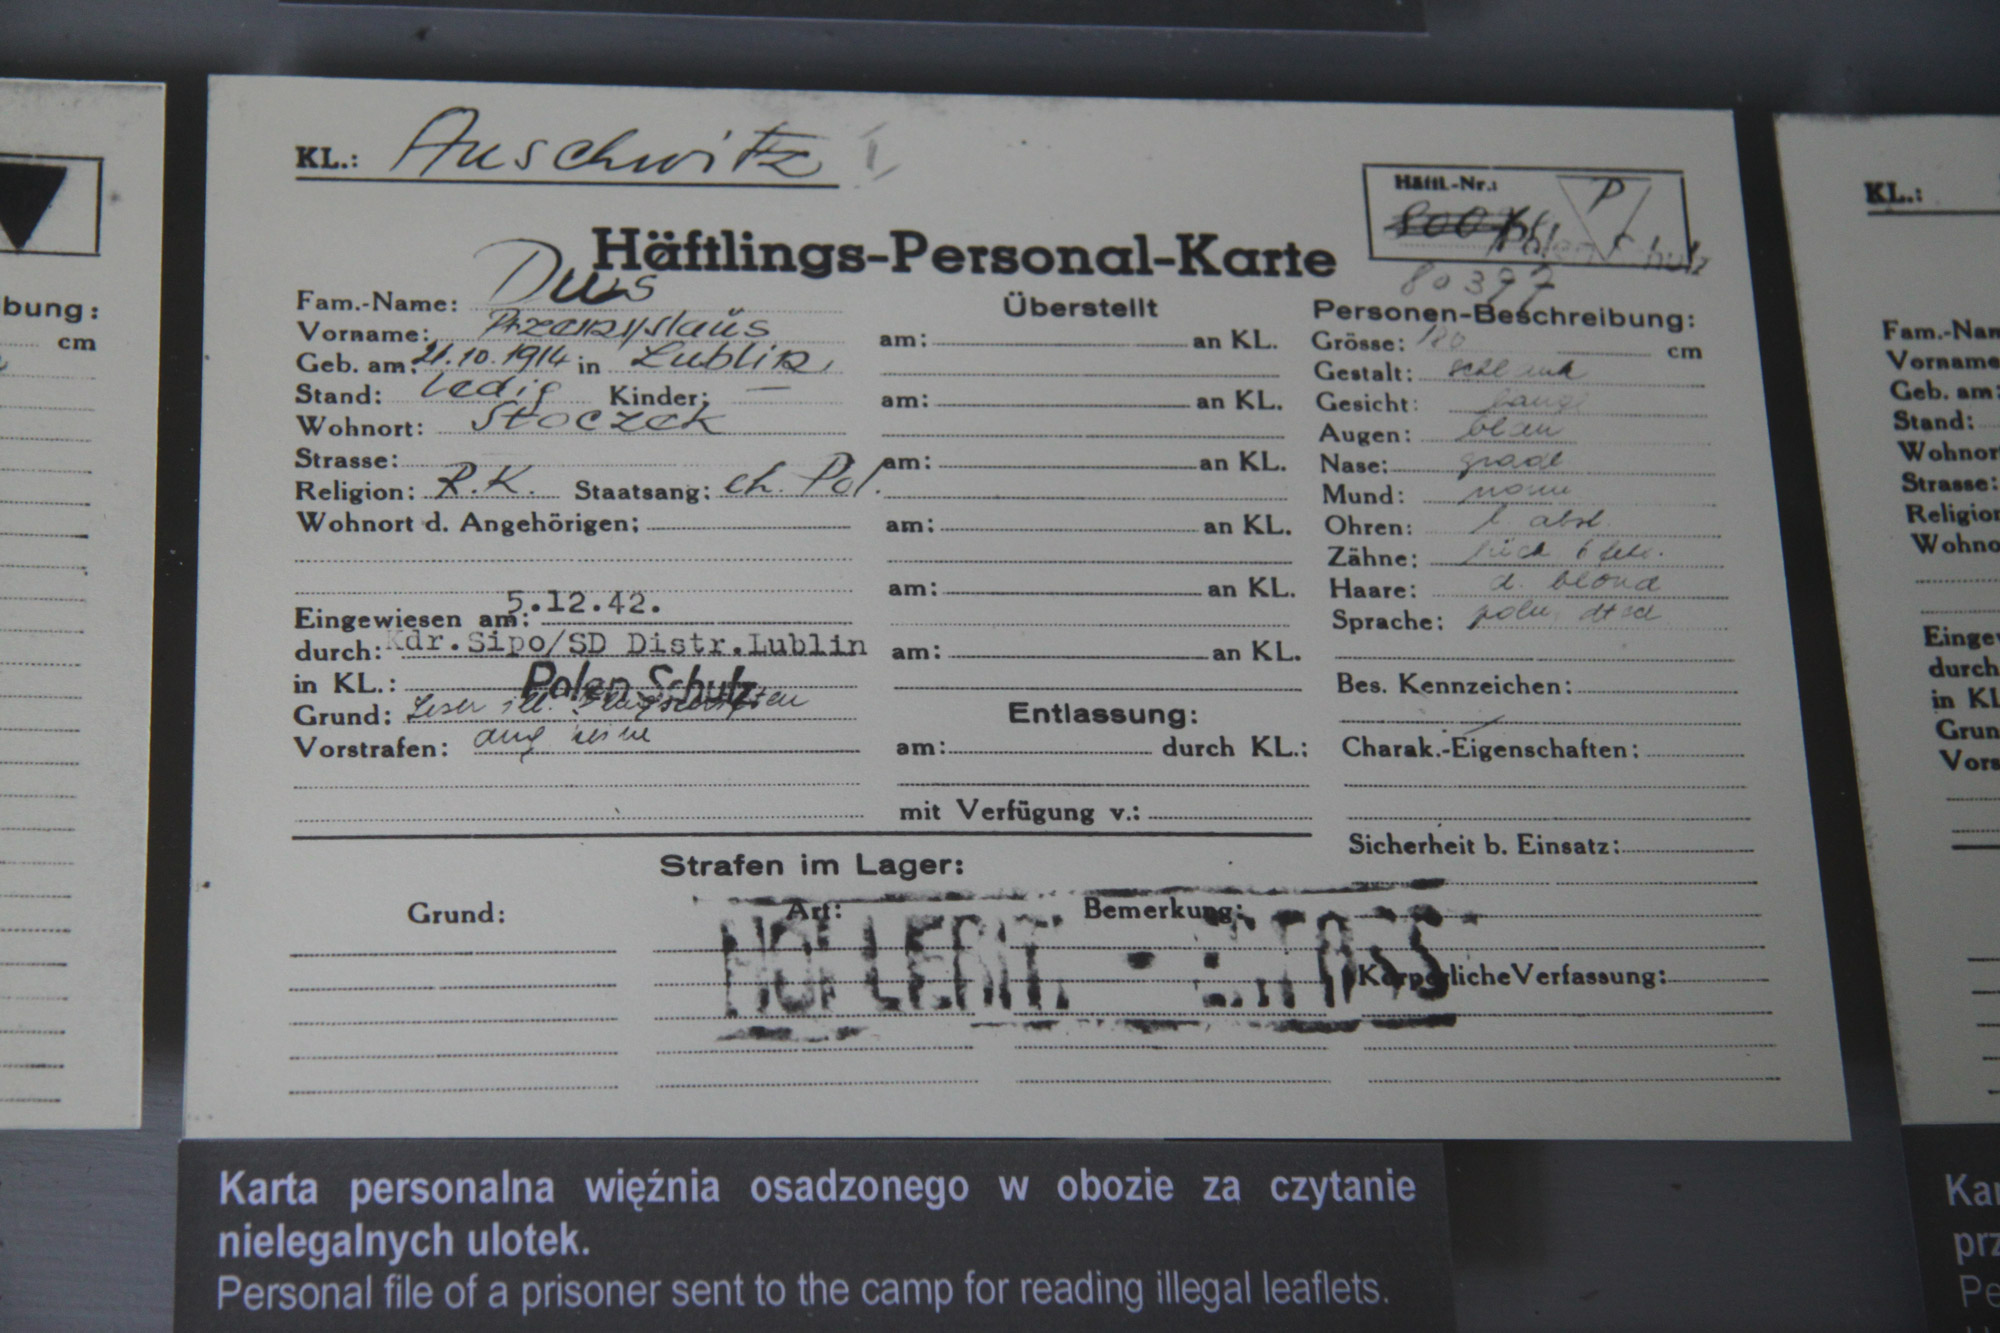 KL.: Auschwitz I
Häftl.-Nr.:
P
Polen Schutz
80397
Häftlings-Personal-Karte
Fam.-Name: Dus
Vorname: Przemyslaus
Geb. am: 21.10.1914 in Lublin
Stand: ledig Kinder: —
Wohnort: Stoczek
Strasse:
Religion: R.K. Staatsang: eh. Pol.
Wohnort d. Angehörigen:
Eingewiesen am: 5.12.42.
durch: Kdr.Sipo/SD Distr.Lublin
in KL.: Polen Schutz
Grund: Leser ill.
Vorstrafen: ang keine
Überstellt
am: an KL.
am: an KL.
am: an KL.
am: an KL.
am: an KL.
am: an KL.
Entlassung:
am: durch KL.:
mit Verfügung v.:
Personen-Beschreibung:
Grösse: 180 cm
Gestalt: schlank
Gesicht:
Augen: blau
Nase: grade
Mund: norm
Ohren: l. abst.
Zähne:
Haare: d. blond
Sprache: poln, dtsch
Bes. Kennzeichen:
Charak.-Eigenschaften:
Sicherheit b. Einsatz:
Körperliche Verfassung:
Strafen im Lager:
Grund: Art: Bemerkung:
HOLLERITH ERFASST
Karta personalna więźnia osadzonego w obozie za czytanie
nielegalnych ulotek.
Personal file of a prisoner sent to the camp for reading illegal leaflets.
bung:
cm
KL.:
Fam.-Nam
Vorname
Geb. am:
Stand:
Wohnort
Strasse:
Religion
Wohno
Einge
durch
in KL
Grun
Vors
Kar
prz
Pe